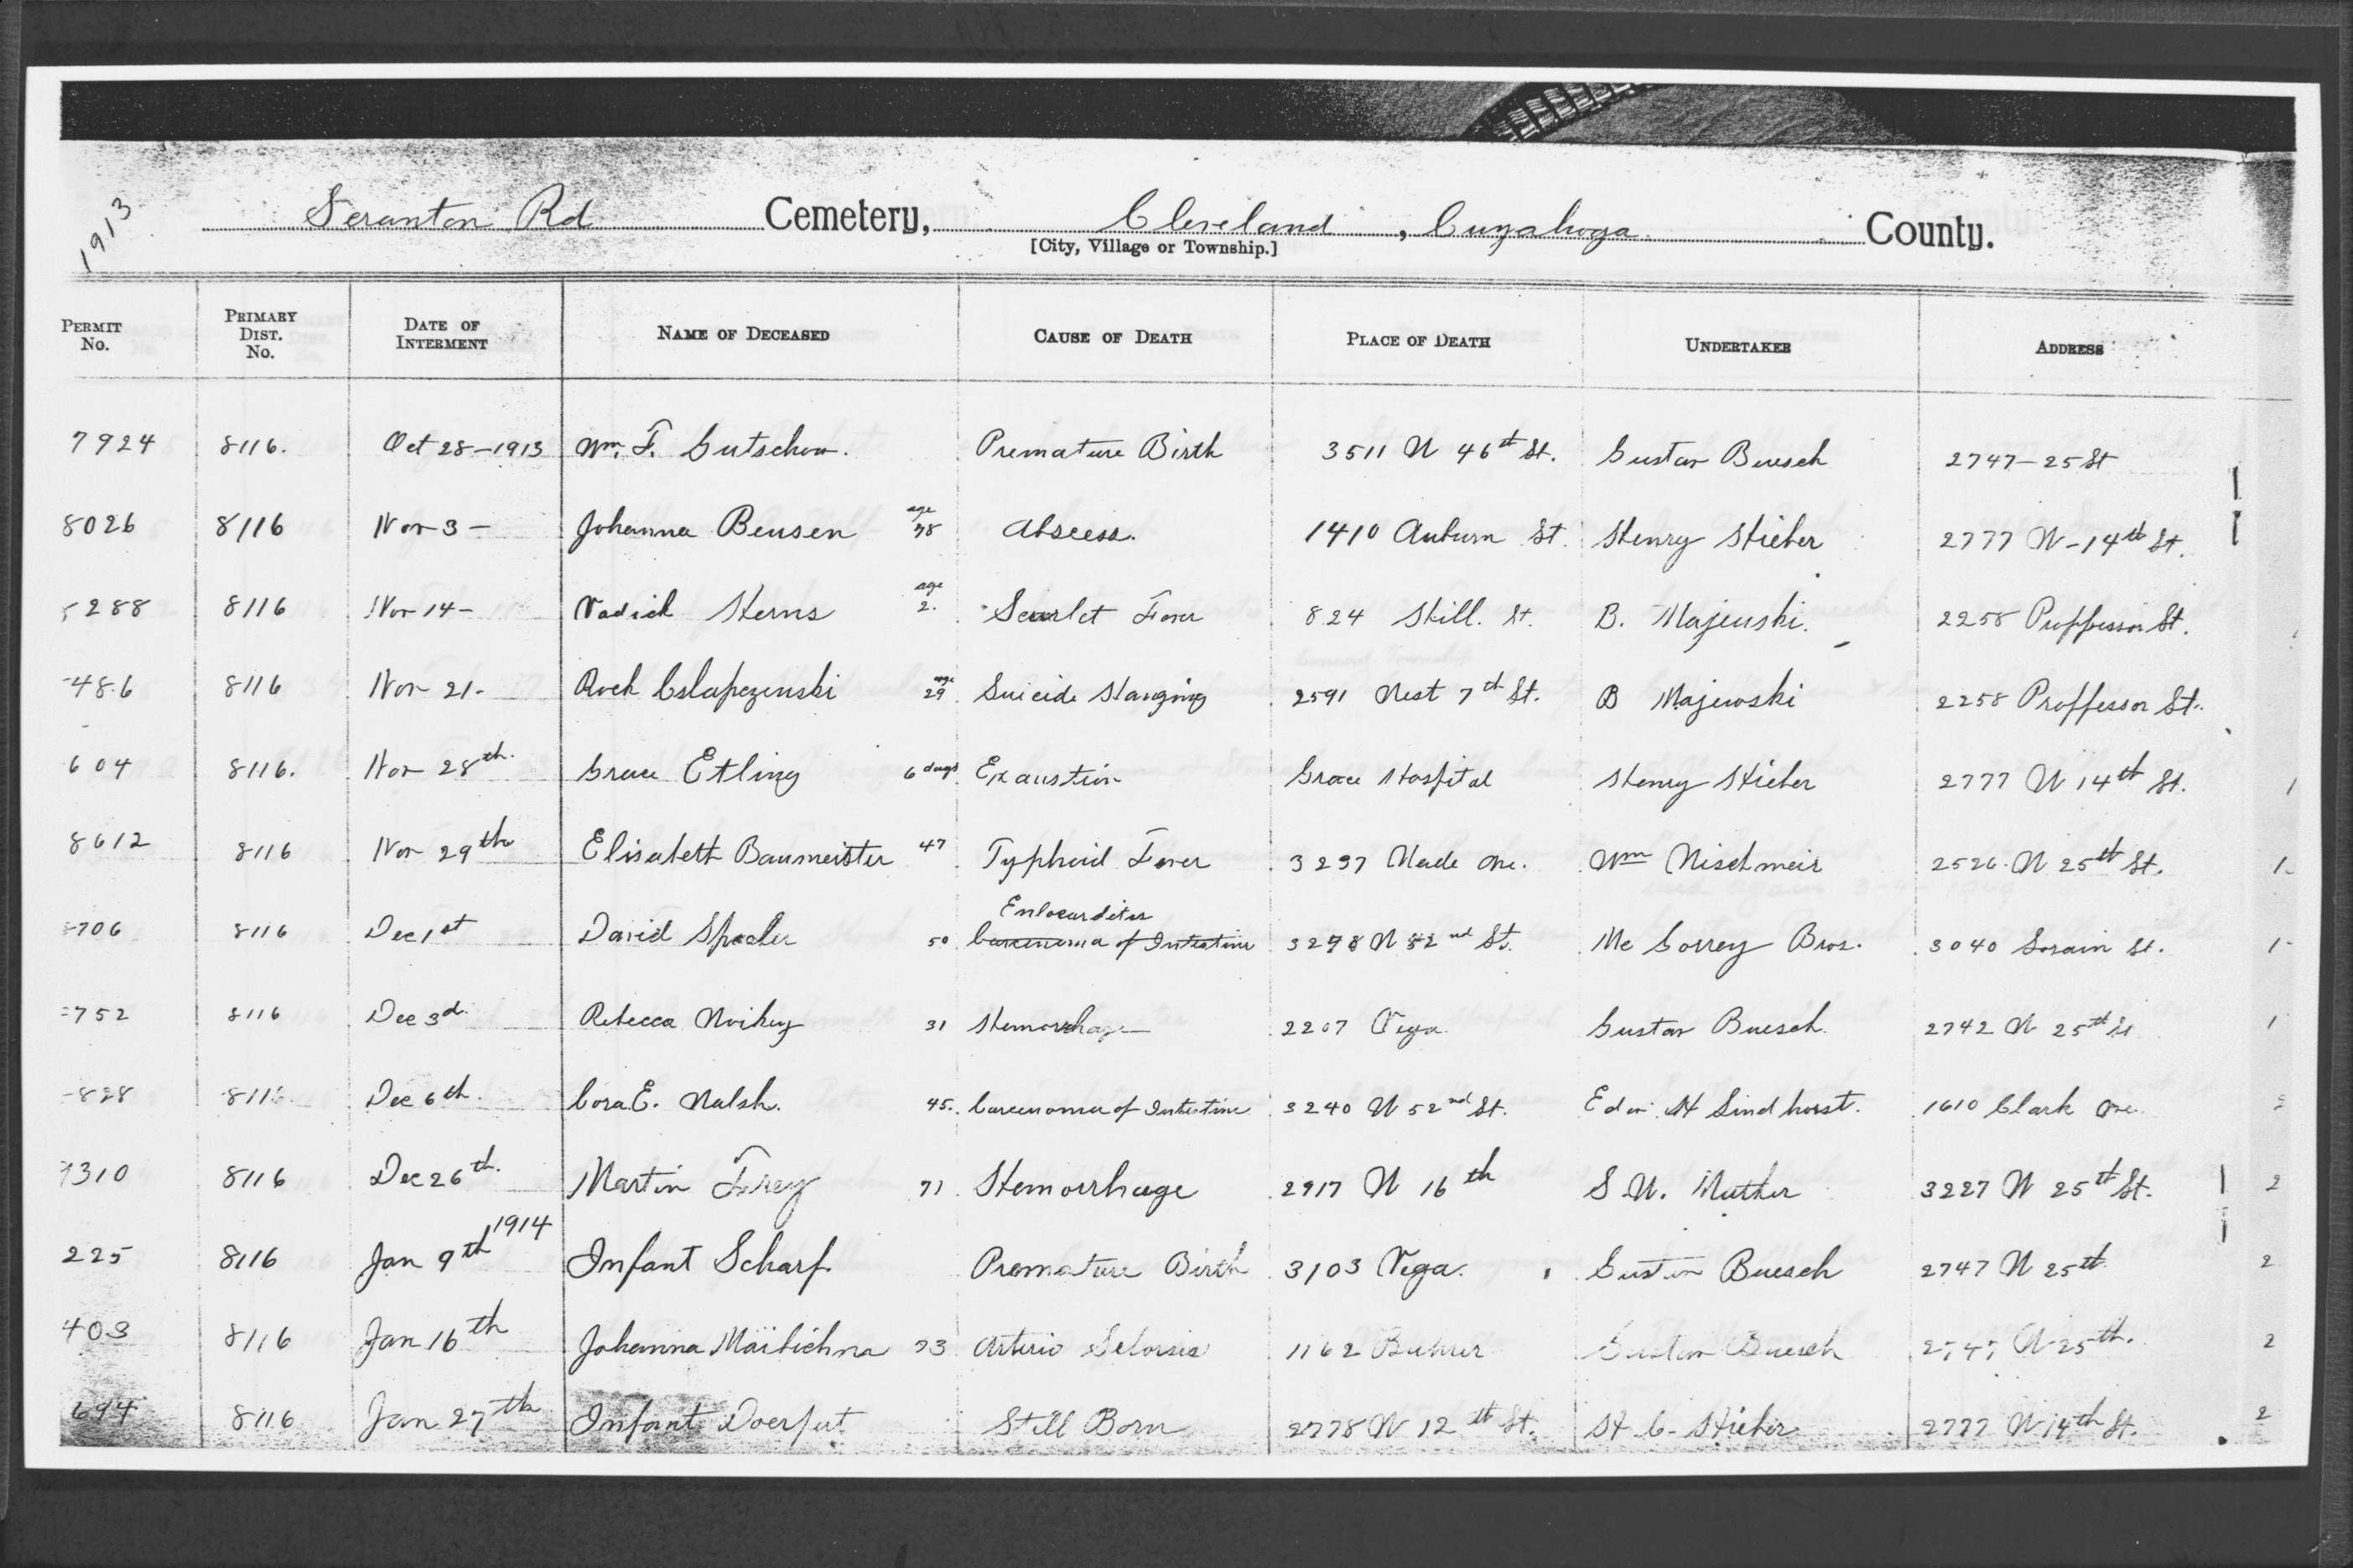 1913
Scranton Rd Cemetery, Cleveland, Cuyahoga County.
[City, Village or Township.]
Permit No. Primary Dist. No. Date of Interment Name of Deceased Cause of Death Place of Death Undertaker Address
7924 8116. Oct 28-1913 Wm. F. Gutschow. Premature Birth 3511 W 46th St. Gustav Buesch 2747-25 St
8026 8116 Nov 3- Johanna Beusen age 78 Abscess. 1410 Auburn St. Henry Stieber 2777 W-14th St.
5288 8116 Nov 14- Vadick Herns age 2. Scarlet Fever 824 Skill. St. B. Majewski. 2258 Proffessor St.
486 8116 Nov 21- Rock age 29 Suicide Hanging 2591 West 7th St. B Majewski 2258 Proffessor St.
604 8116. Nov 28th. Grace Etling 6 days Exaustion Grace Hospital Henry Stieber 2777 W 14th St. 1
8612 8116 Nov 29th Elisabett Baumeister 47 Typhoid Fever 3297 Wade Ave. Wm Nischmeir 2526 W 25th St. 1
706 8116 Dec 1st David 50 Carcinoma of Intestine 3298 W 82nd St. Mc Gorrey Bros. 3040 Lorain St. 1
752 8116 Dec 3d. Rebecca 31 Hemorrhage 2207 Vega Gustav Buesch. 2742 W 25th St 1
828 8116 Dec 6th. Cora E. Walsh. 45. Carcenoma of Intestine 3240 W 52nd St. Edw. H Lindhorst. 1610 Clark Ave. 2
9310 8116 Dec 26th. Martin Frey 71 Hemorrhage 2917 W 16th S. W. Muther 3227 W 25th St. 2
225 8116 Jan 9th 1914 Infant Scharf Premature Birth 3103 Vega. Gustav Buesch 2747 W 25th 2
403 8116 Jan 16th Johanna 73 Arterio Selorsis 1162 Buhrer Gustav Buesch 2747 W 25th. 2
694 8116 Jan 27th Infant Still Born 2778 W 12th St. H C- Stieber 2777 W 14th St. 2